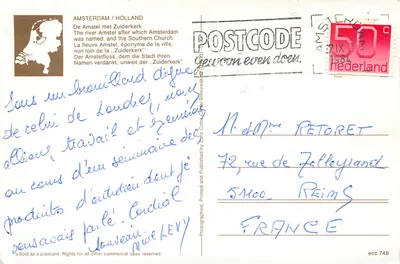 AMSTERDAM / HOLLAND
De Amstel met Zuiderkerk
The river Amstel after which Amsterdam
was named, and the Southern Church
La fleuve Amstel, éponyme de la ville,
non loin de la "Zuiderkerk"
Der Amstelfluss, dem die Stadt ihren
Namen verdankt, unweit der "Zuiderkerk"
Sous un brouillard digne
de celui de Londres, nous
allions travail et
au cours d'un séminaire des
produits d'entretien dont je
vous avais parlé. Cordial
Souvenir.
LEVY
Sold as a postcard. Rights for all other commercial uses reserved.
POSTCODE
Gewoon even doen.
AMSTERDAM
IX
1984
50c
nederland
M. Mme RETORET
72, rue de Talleyrand
51100 REIMS
FRANCE
ecc 748